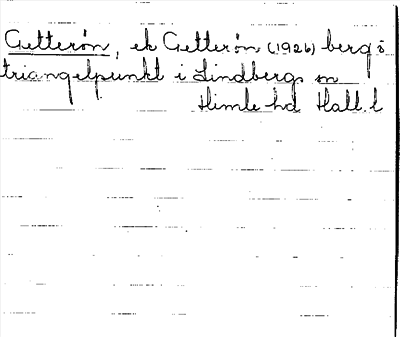 Getterön, ek Getterön (1926) berg o
triangelpunkt i Lindbergs sn
Himle hd Hall. l